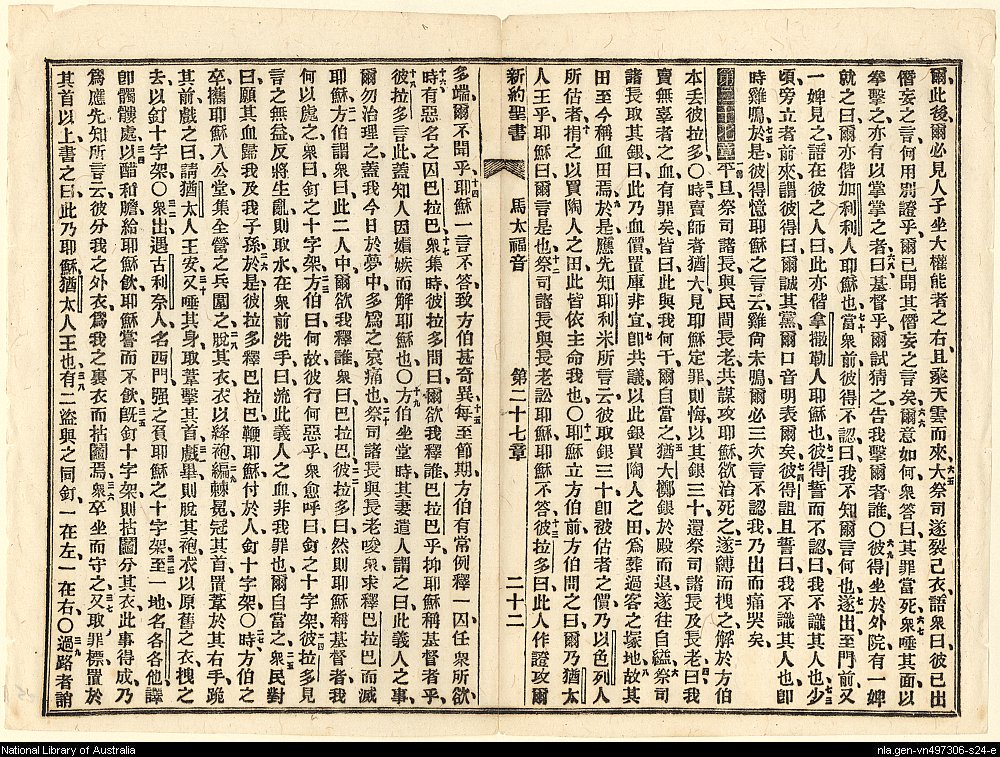 爾此後爾必見人子坐大權能者之右且乘天雲而來大祭司遂裂己衣語衆曰彼已出
僭妄之言何用別證乎爾已聞其僭妄之言矣爾意如何衆答曰其罪當死衆唾其面以
拳擊之亦有以掌掌之者曰基督乎爾試猜之告我擊爾者誰〇彼得坐於外院有一婢
就之曰爾亦偕加利利人耶穌也當衆前彼得不認曰我不知爾言何也遂出至門前又
一婢見之語在彼之人曰此亦偕拿撒勒人耶穌也彼得誓而不認曰我不識其人也少
頃旁立者前來謂彼得曰爾誠其黨爾口音明表爾矣彼得詛且誓曰我不識其人也卽
時雞鳴於是彼得憶耶穌之言云雞尙未鳴爾必三次言不認我乃出而痛哭矣
第二十七章平旦祭司諸長與民間長老共謀攻耶穌欲治死之遂縛而拽之解於方伯
本丢彼拉多〇時賣師者猶大見耶穌定罪則悔以其銀三十還祭司諸長及長老曰我
賣無辜者之血有罪矣皆曰此與我何干爾自當之猶大擲銀於殿而退遂往自縊祭司
諸長取其銀曰此乃血價置庫非宜卽共議以此銀買陶人之田爲葬過客之塚地故其
田至今稱血田焉於是應先知耶利米所言云彼取銀三十卽被估者之價乃以色列人
所估者捐之以買陶人之田此皆依主命我也〇耶穌立方伯前方伯問之曰爾乃猶太
人王乎耶穌曰爾言是也祭司諸長與長老訟耶穌耶穌不答彼拉多曰此人作證攻爾
新約聖書 馬太福音 第二十七章 二十二
多端爾不聞乎耶穌一言不答致方伯甚奇異每至節期方伯有常例釋一囚任衆所欲
時有惡名之囚巴拉巴衆集時彼拉多問曰爾欲我釋誰巴拉巴乎抑耶穌稱基督者乎
彼拉多言此蓋知人因媢嫉而解耶穌也〇方伯坐堂時其妻遣人謂之曰此義人之事
爾勿治理之蓋我今日於夢中多爲之哀痛也祭司諸長與長老唆衆求釋巴拉巴而滅
耶穌方伯謂衆曰此二人中爾欲我釋誰衆曰巴拉巴彼拉多曰然則耶穌稱基督者我
何以處之衆曰釘之十字架方伯曰何故彼行何惡乎衆愈呼曰釘之十字架彼拉多見
言之無益反將生亂則取水在衆前洗手曰流此義人之血非我罪也爾自當之衆民對
曰願其血歸我及我子孫於是彼拉多釋巴拉巴鞭耶穌付於人釘十字架〇時方伯之
卒攜耶穌入公堂集全營之兵圜之脫其衣衣以絳袍編棘冕冠其首置葦於其右手跪
其前戲之曰請猶太人王安又唾其身取葦擊其首戲畢則脫其袍衣以原舊之衣拽之
去以釘十字架〇衆出遇古利奈人名西門强之負耶穌之十字架至一地名各各他譯
卽髑髏處以醋和膽給耶穌飲耶穌嘗而不飮旣釘十字架則拈鬮分其衣此事得成乃
爲應先知所言云彼分我之外衣爲我之裏衣而拈鬮焉衆卒坐而守之又取罪標置於
其首以上書之曰此乃耶穌猶太人王也有二盜與之同釘一在左一在右〇過路者誚
National Library of Australia
nla.gen-vn497306-s24-e